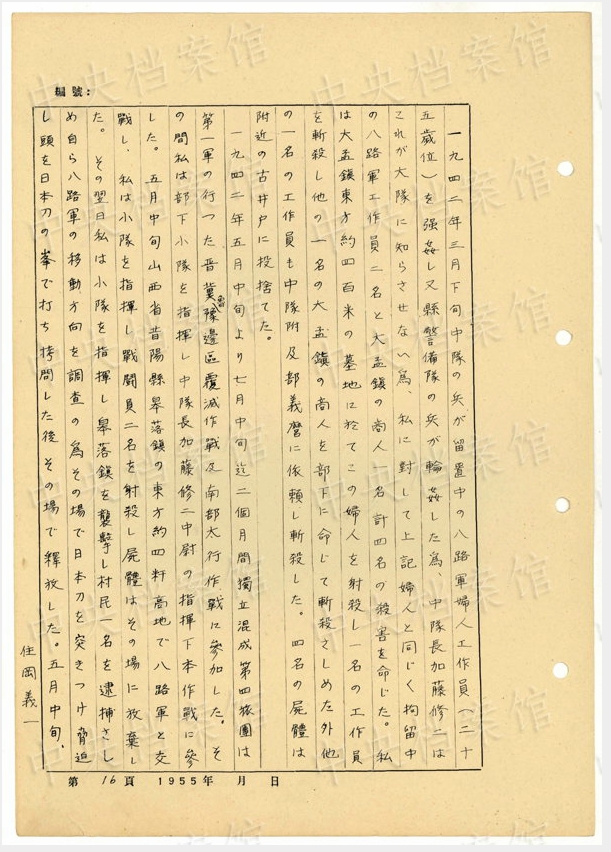 編號：
一九四二年三月下旬中隊の兵が留置中の八路軍婦人工作員（二十
五歲位）を强姦し又縣警備隊の兵が輪姦した為、中隊長加藤修二は
これが大隊に知らさせない為、私に對して上記婦人と同じく拘留中
の八路軍工作員二名と大盂鎮の商人一名計四名の殺害を命じた。私
は大盂鎮東方約四百米の墓地に於てこの婦人を射殺し一名の工作員
を斬殺し他の一名の大盂鎮の商人を部下に命じて斬殺さしめた外他
の一名の工作員も中隊附及部義麿に依頼し斬殺した。四名の屍體は
附近の古井戸に投捨てた。
一九四二年五月中旬より七月中旬迄二個月間獨立混成第四旅團は
第一軍の行つた晋冀魯豫邊區覆滅作戰及南部太行作戰に參加した。そ
の間私は部下小隊を指揮し中隊長加藤修二中尉の指揮下本作戰に參
した。五月中旬山西省昔陽縣皋落鎮の東方約四粁高地で八路軍と交
戰し、私は小隊を指揮し戰鬪員二名を射殺し屍體はその場に放棄し
た。その翌日私は小隊を指揮し皋落鎮を襲擊し村民一名を逮捕さし
め自ら八路軍の移動方向を調査の為その場で日本刀を突きつけ脅迫
し頭を日本刀の峯で打ち拷問した後その場で釋放した。五月中旬、
住岡義一
第 16 頁 1955年 月 日
中央档案馆